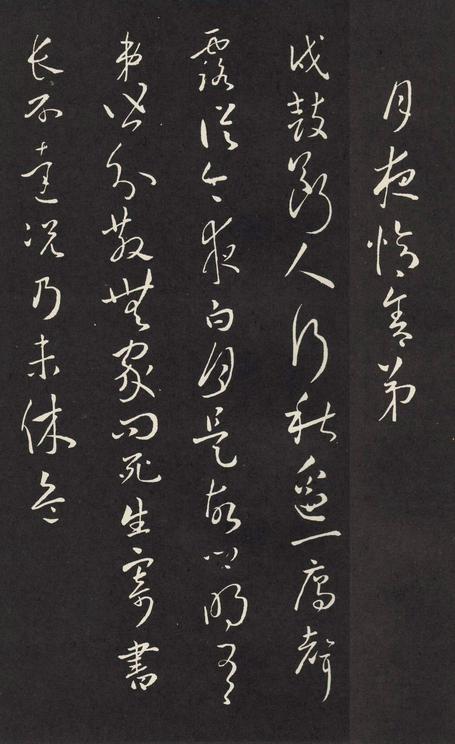 月夜憶舍弟
戍鼓斷人行秋邊一雁聲
露從今夜白月是故鄉明有
弟皆分散無家問死生寄書
長不達況乃未休兵